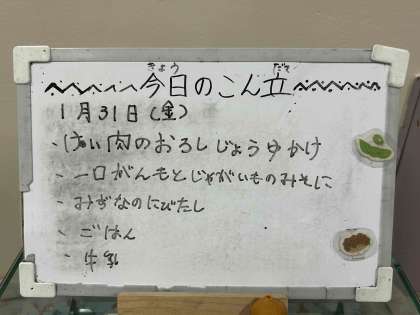 きょう だて
今日のこん立
1月31日(金)
・けい肉のおろしじょうゆかけ
・一口がんもとじゃがいものみそに
・みずなのにびたし
・ごはん
・牛乳